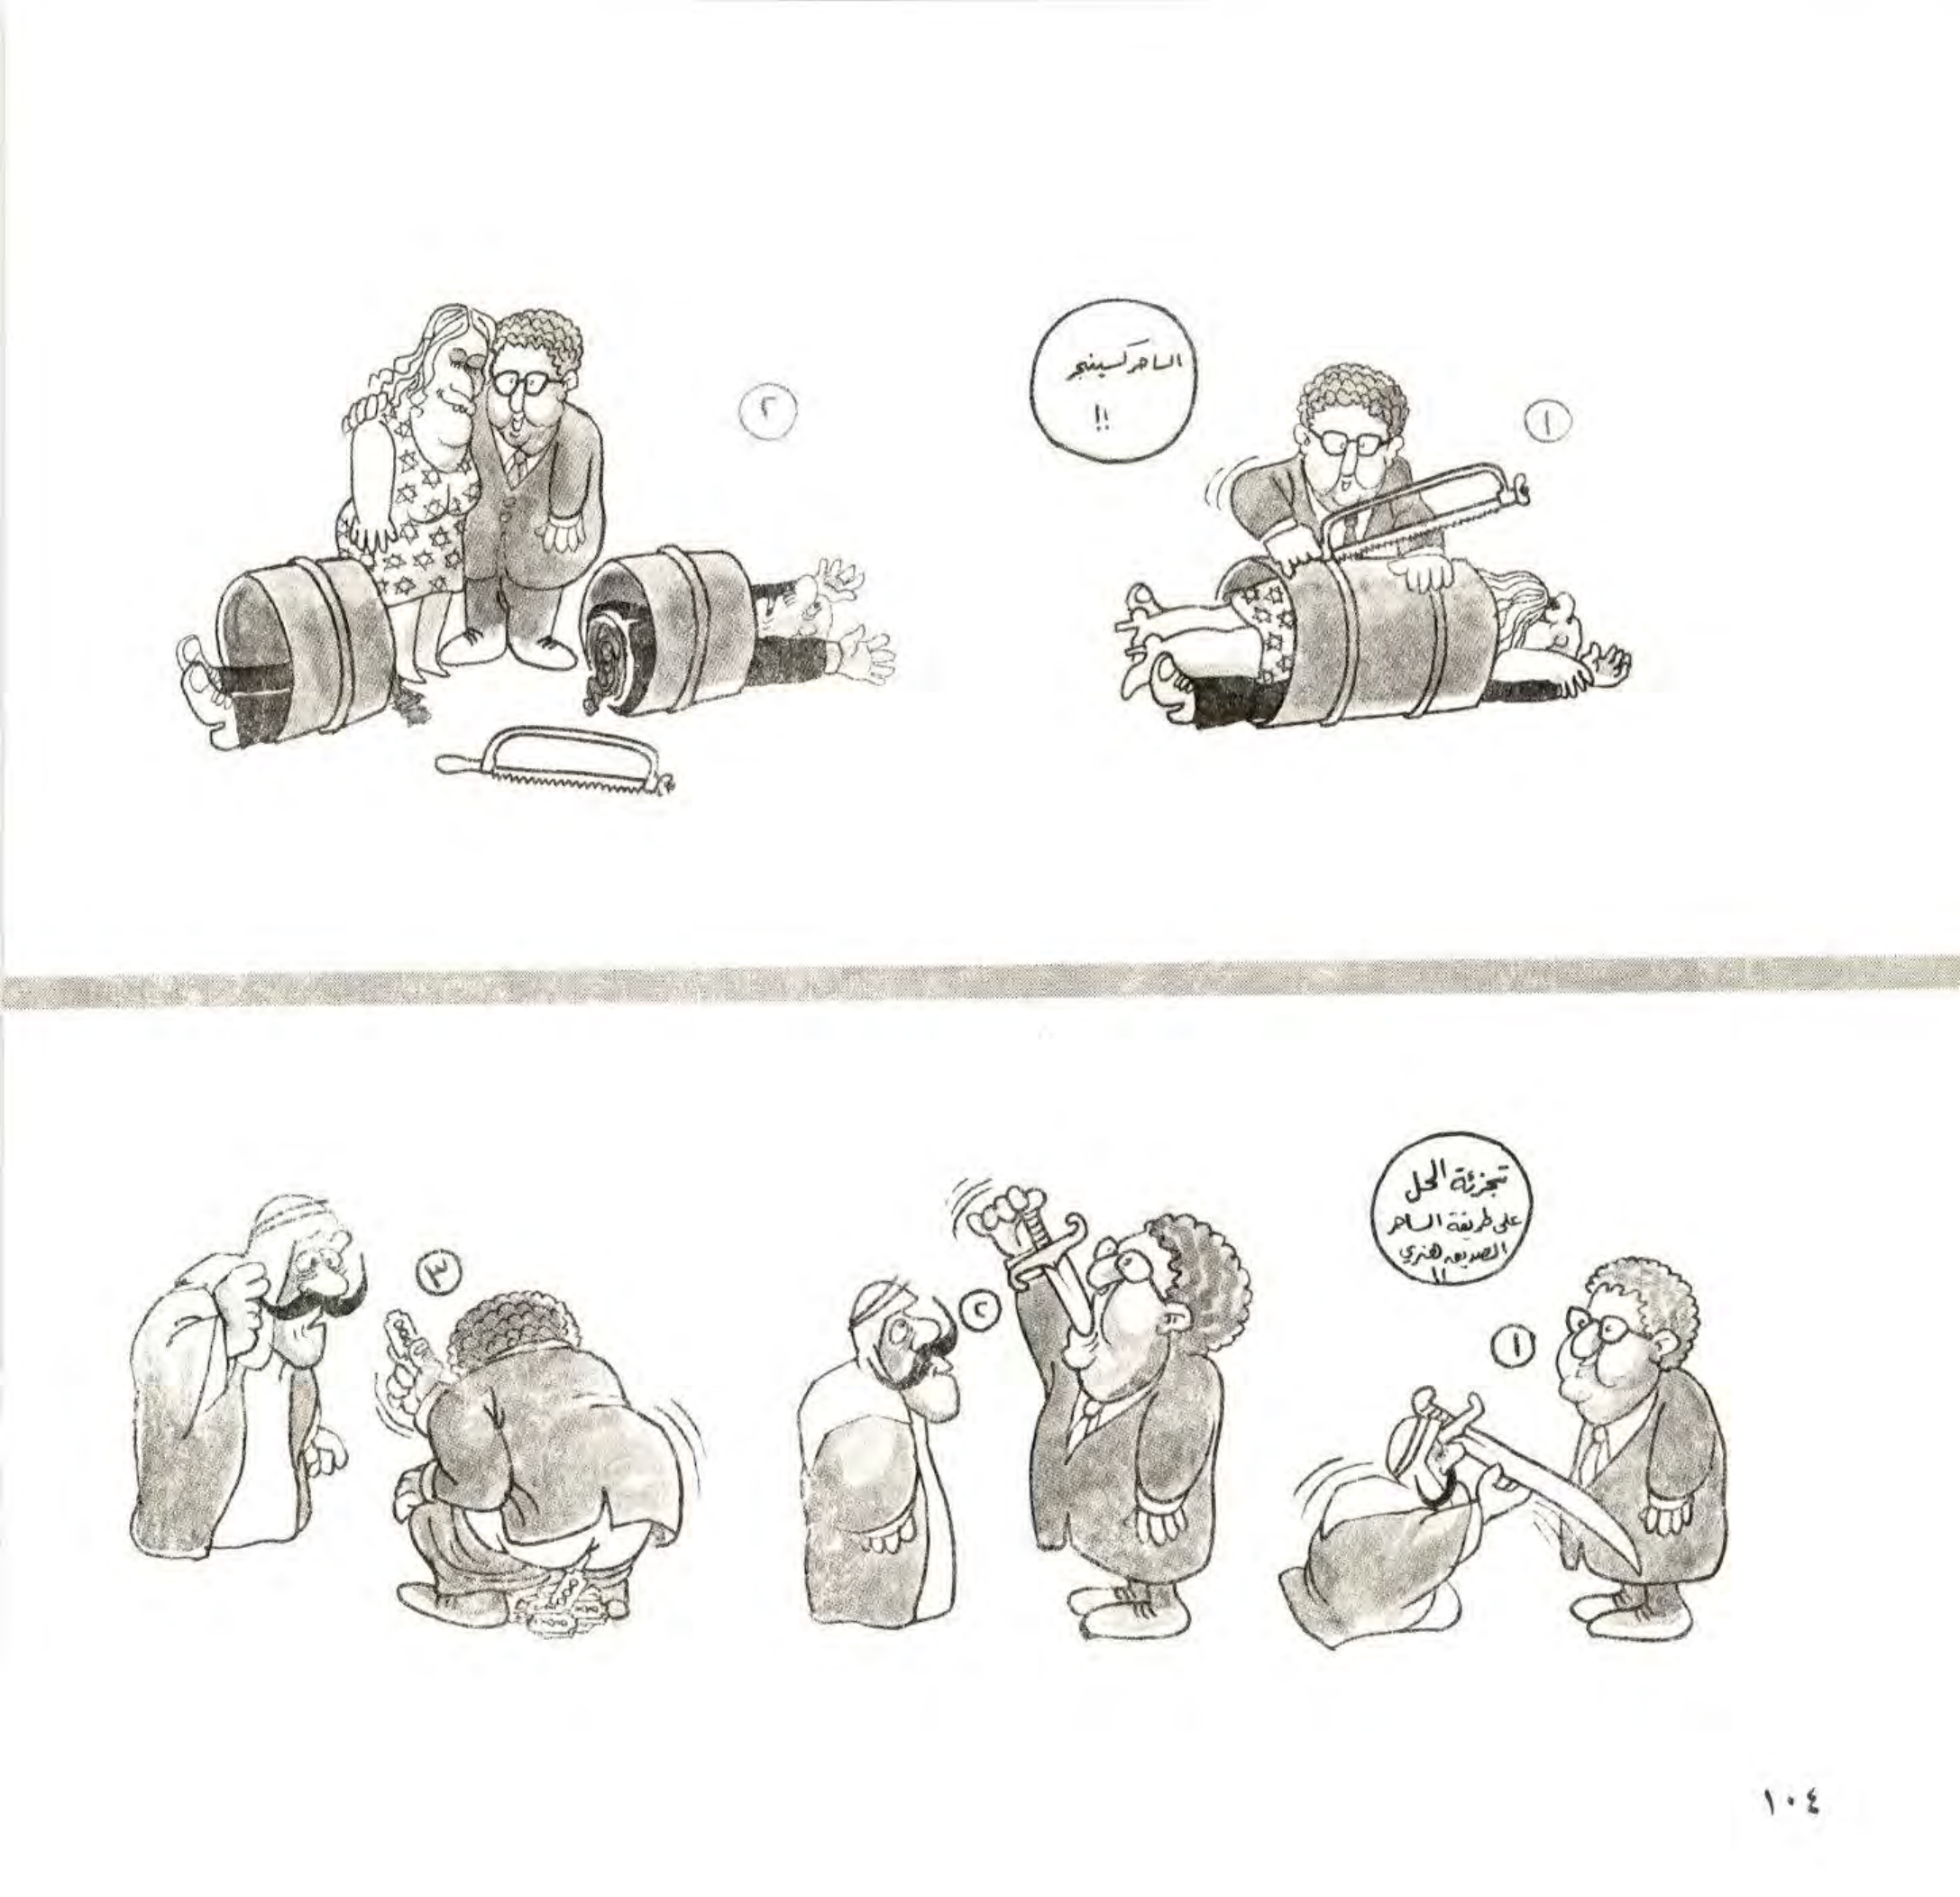 ١
الساحر كسينجر
!!
٢
تجزئة الحل
على طريقة الساحر
الصديق هنري
!!
١
٢
٣
١٠٤